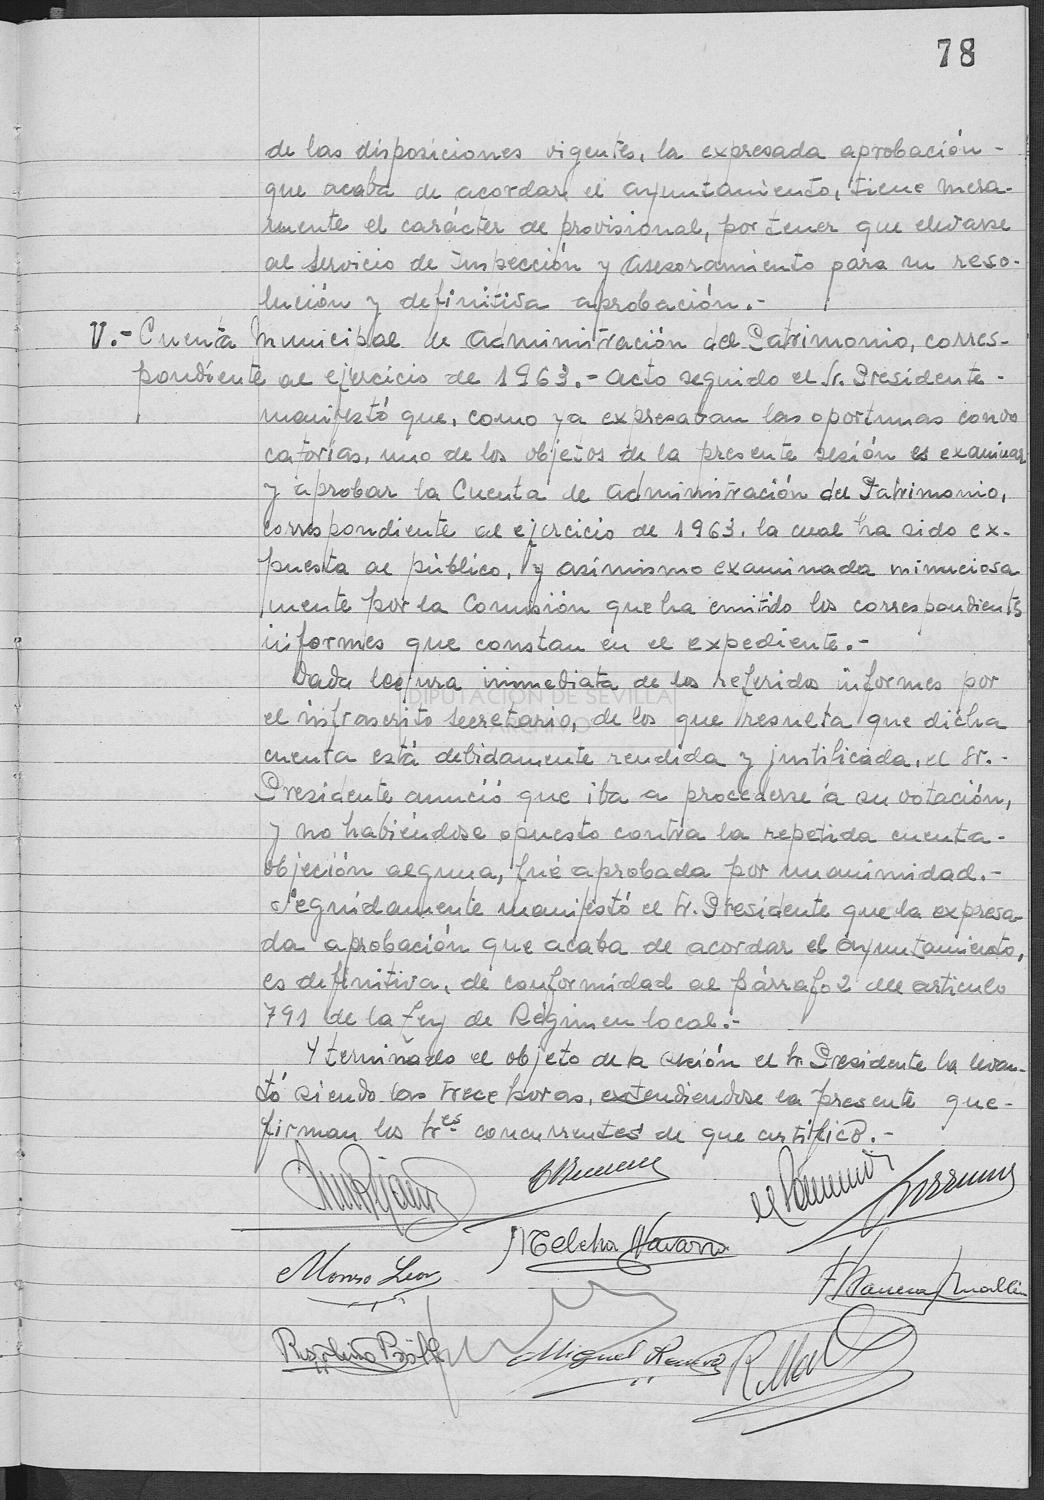 78
de las disposiciones vigentes, la expresada aprobación -
que acaba de acordar el Ayuntamiento, tiene mera-
mente el carácter de provisional, por tener que elevarse
al Servicio de Inspección y Asesoramiento para su reso-
lución y definitiva aprobación.-
V.- Cuenta Municipal de Administración del Patrimonio, corres-
pondiente al ejercicio de 1963.- Acto seguido el Sr. Presidente -
manifestó que, como ya expresaban las oportunas convo
catorias, uno de los objetos de la presente sesión es examinar
y aprobar la Cuenta de Administración del Patrimonio,
correspondiente al ejercicio de 1963, la cual ha sido ex-
puesta al público, y asimismo examinada minuciosa
mente por la Comisión que ha emitido los correspondientes
informes que constan en el expediente.-
Dada lectura inmediata de los referidos informes por
DIPUTACIÓN DE SEVILLA
ARCHIVO
el infrascrito Secretario, de los que resulta que dicha
cuenta está debidamente rendida y justificada, el Sr.-
Presidente anunció que iba a procederse a su votación,
y no habiéndose opuesto contra la repetida cuenta -
objeción alguna, fué aprobada por unanimidad.-
Seguidamente manifestó el Sr. Presidente que la expresa-
da aprobación que acaba de acordar el Ayuntamiento,
es definitiva, de conformidad al párrafo 2 del artículo
791 de la Ley de Régimen Local.-
Y terminado el objeto de la sesión el Sr. Presidente la levan-
tó siendo las trece horas, extendiéndose la presente que -
firman los Sres concurrentes de que certifico.-
Alonso Leon
Melcho Navarro
Miguel